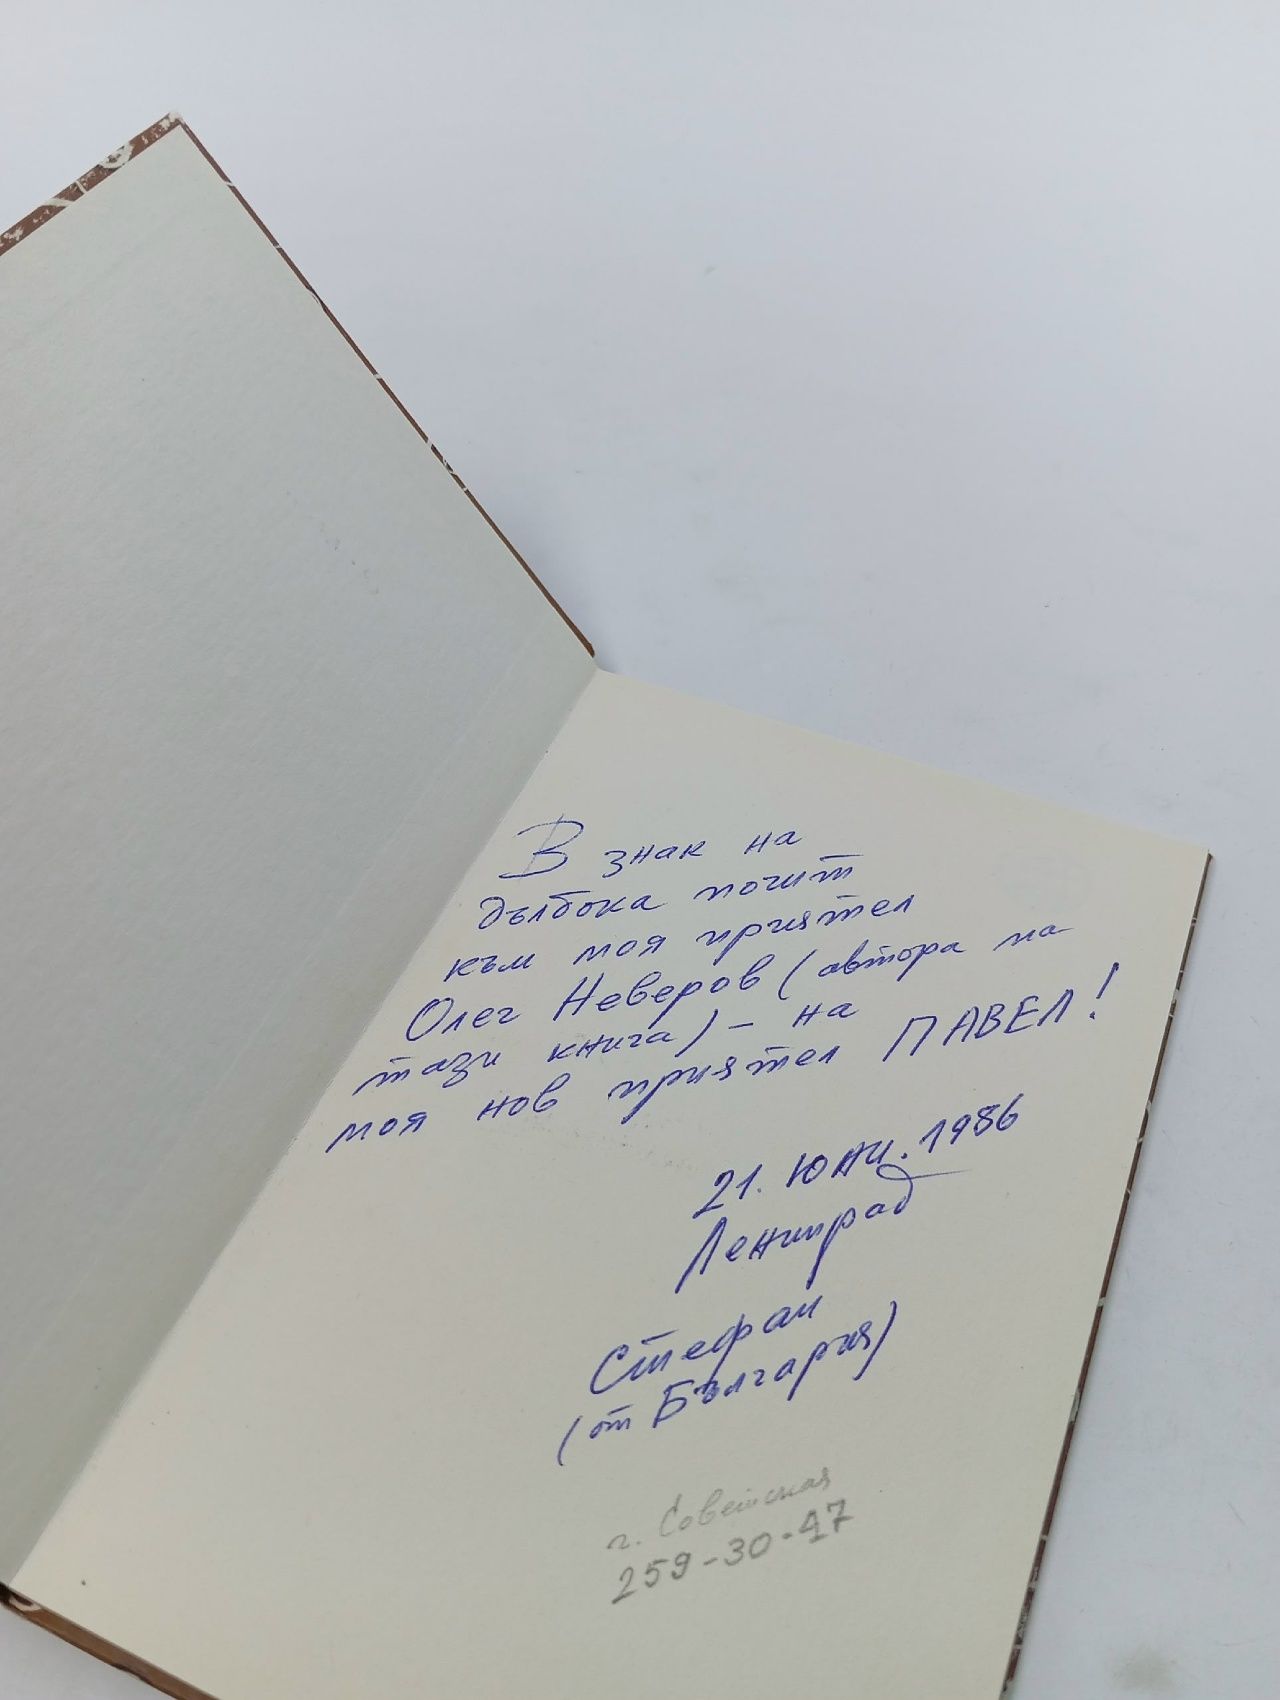 В знак на
дълбока почит
към моя приятел
Олег Неверов (автора на
тази книга) - на
моя нов приятел ПАВЕЛ!
21. ЮНИ. 1986
Ленинград
Стефан
(от България)
г. Советская
259-30-47